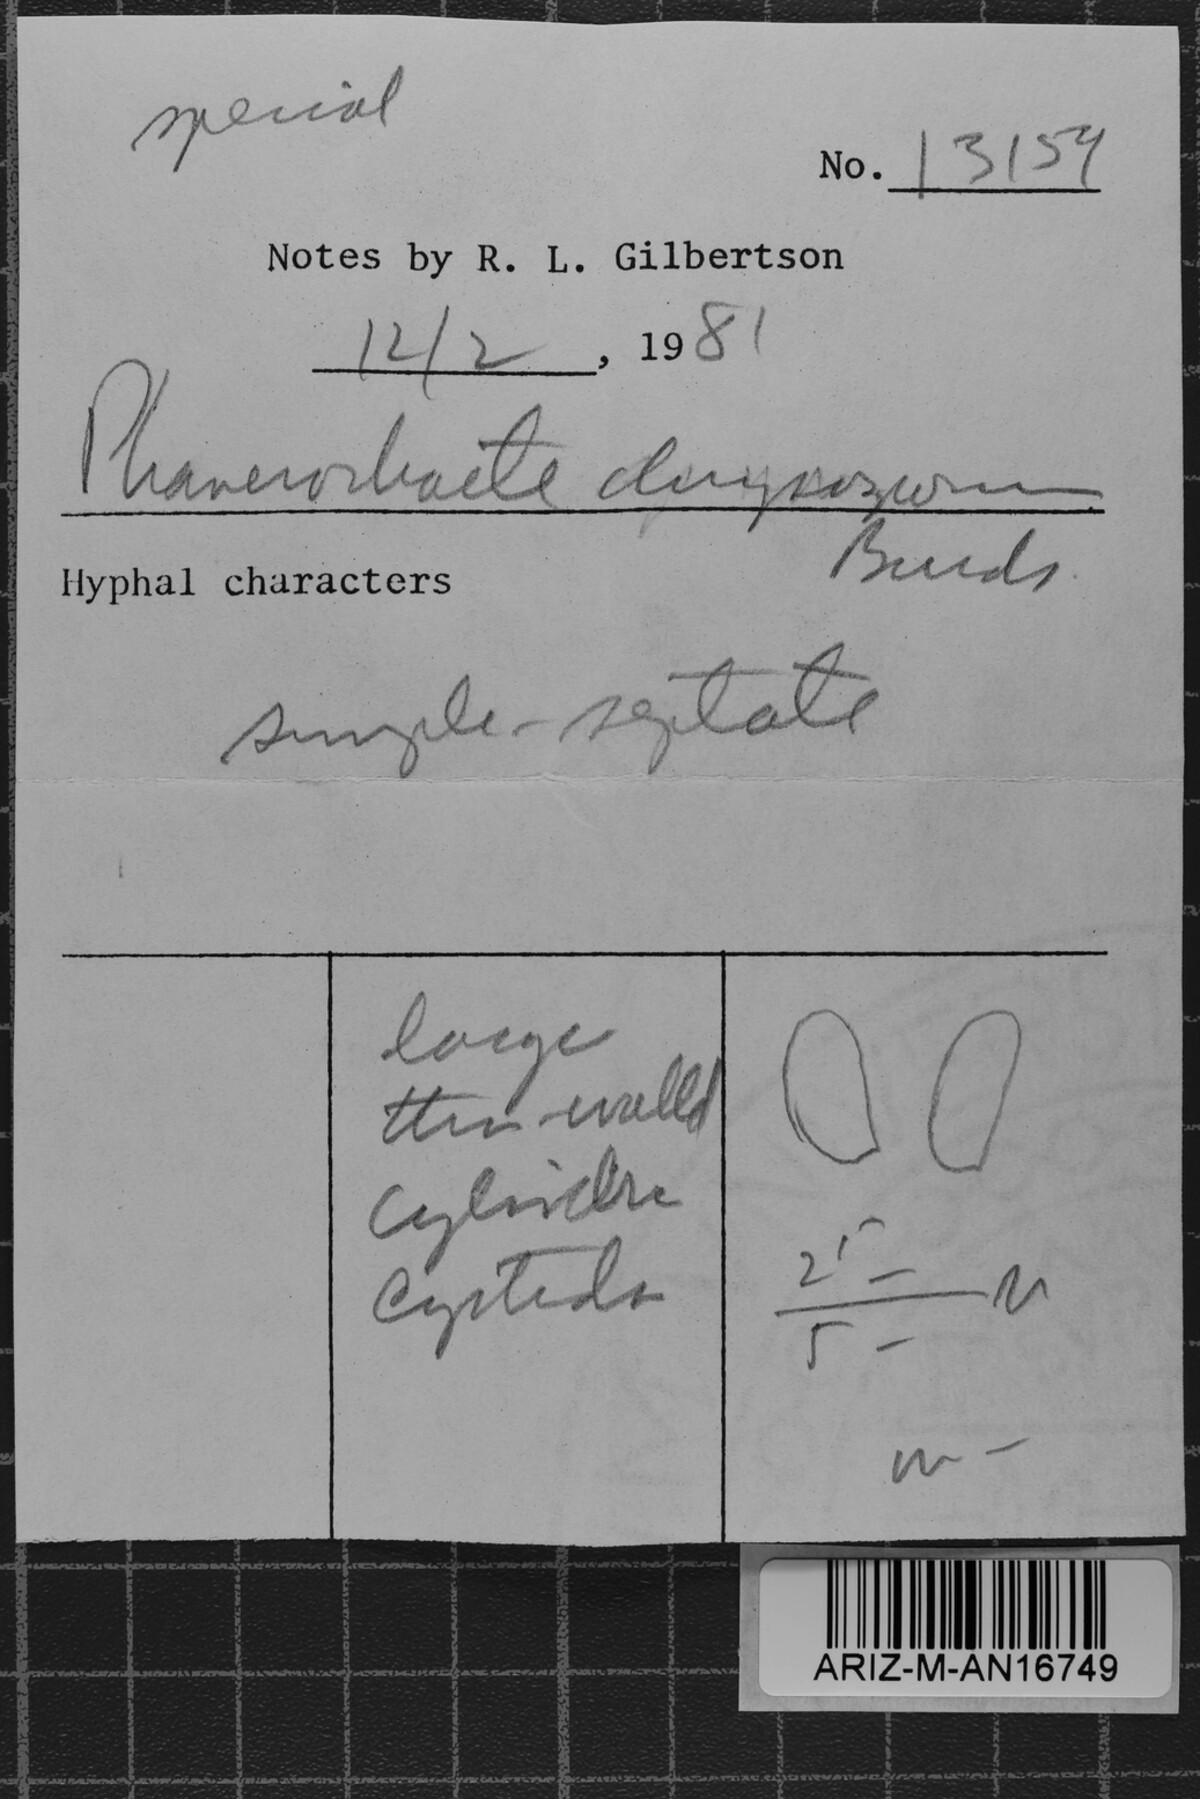 special
No. 13154
Notes by R. L. Gilbertson
12/2, 1981
Phanerochaete chrysorhizum
Burds.
Hyphal characters
simple-septate
large
thin-walld
cylindric
cystidia
25 -
5 -
m -
ARIZ-M-AN16749